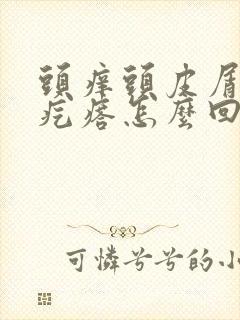 頭痒頭皮屑
疙瘩怎麼回
可憐兮兮的小